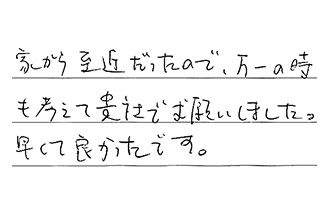 家から至近だったので、万一の時
も考えて貴社でお願いしました。
早くて良かったです。